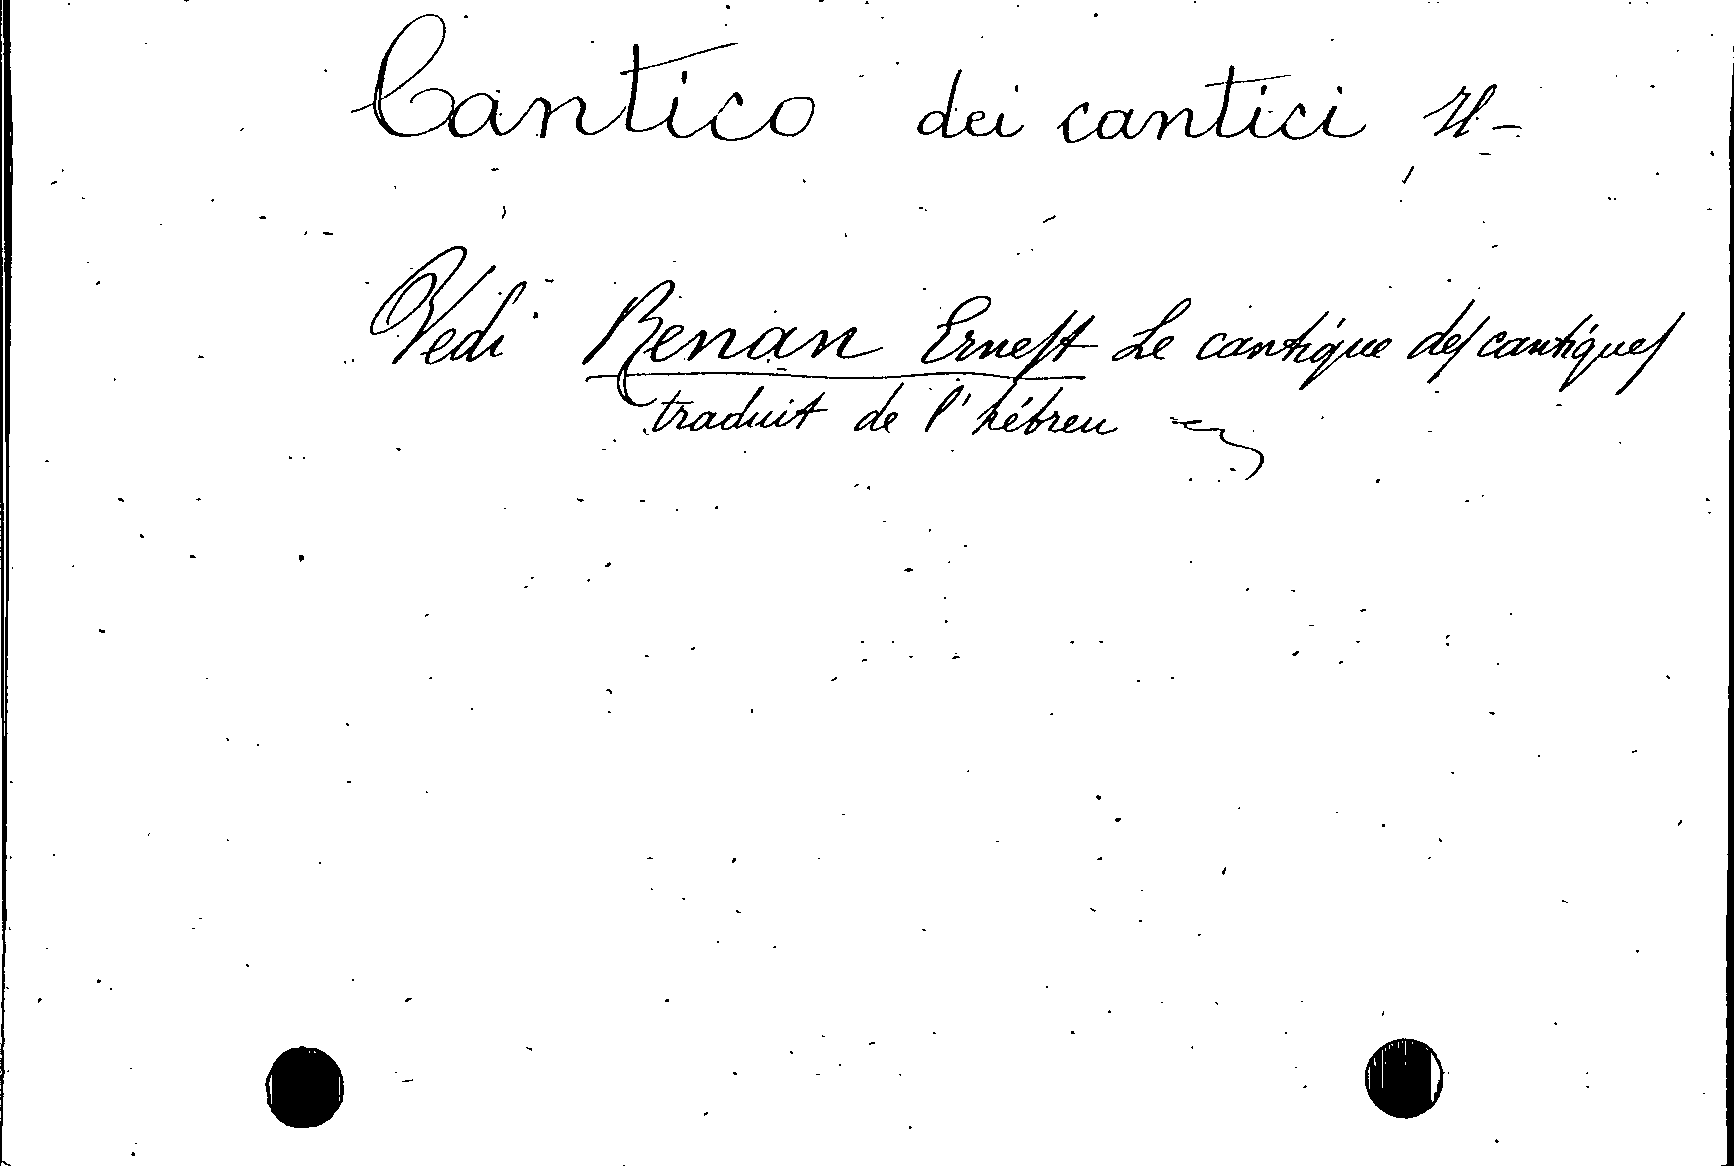 Cantico dei cantici Il -
Vedi Renan Ernest Le cantique des cantiques
traduit de l'hébreu